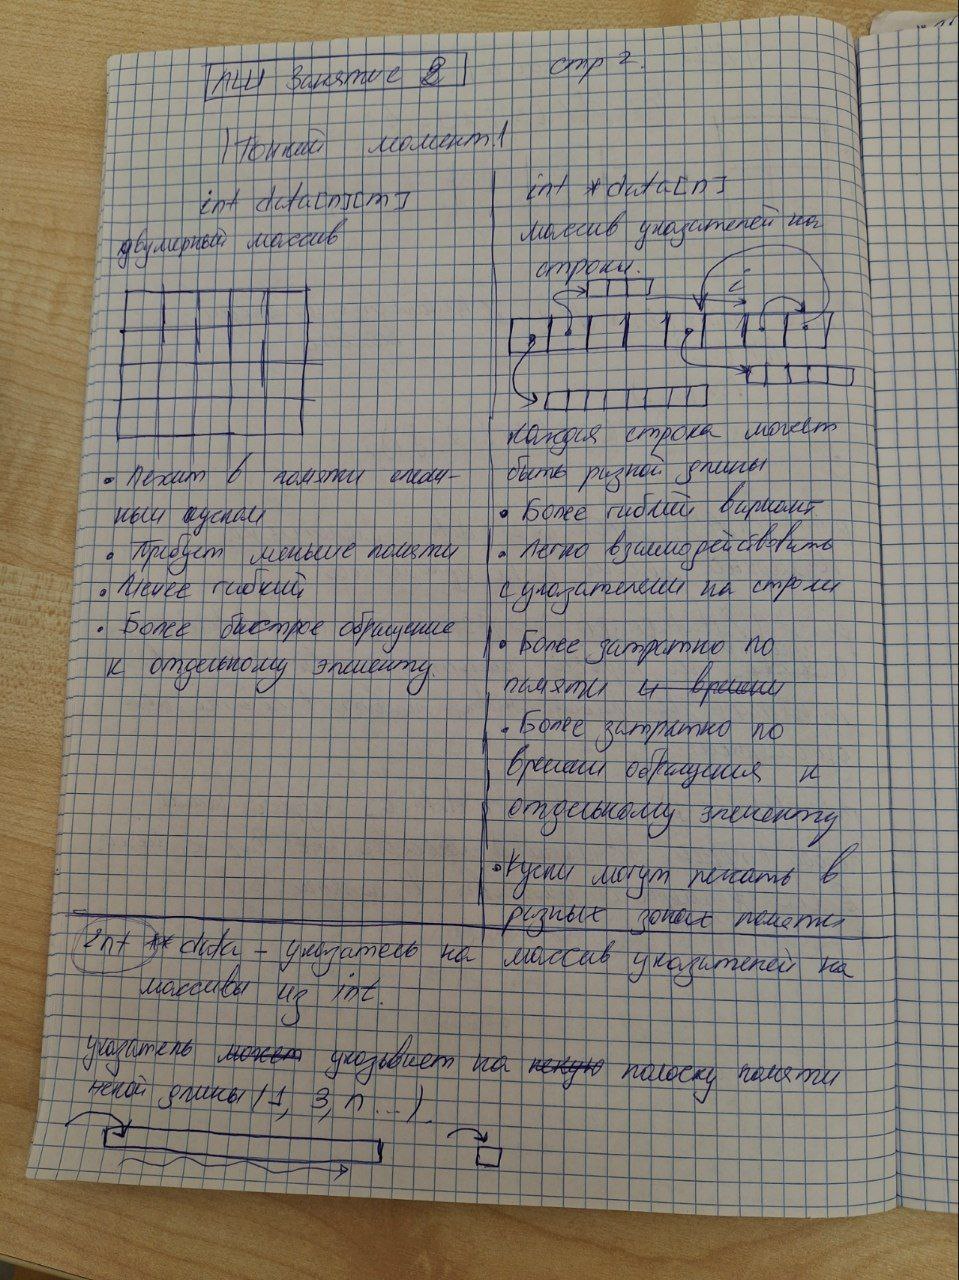 ЛШ Занятие 2
стр 2.
! Тонкий момент!
int data[n][m]
двумерный массив
• Лежит в памяти еди-
ным куском
• Требует меньше памяти
• Менее гибкий
• Более быстрое обращение
к отдельному элементу.
int *data[n]
массив указателей на
строки.
каждая строка может
быть разной длины
• Более гибкий вариант
• Легко взаимодействовать
с указателями на строки
• Более затратно по
памяти и времени
• Более затратно по
времени обращения к
отдельному элементу
• Куски могут лежать в
разных зонах памяти
int ** data - указатель на массив указателей на
массивы из int.
указатель может указывает на некую полоску памяти
некой длины (1, 3, n ...).